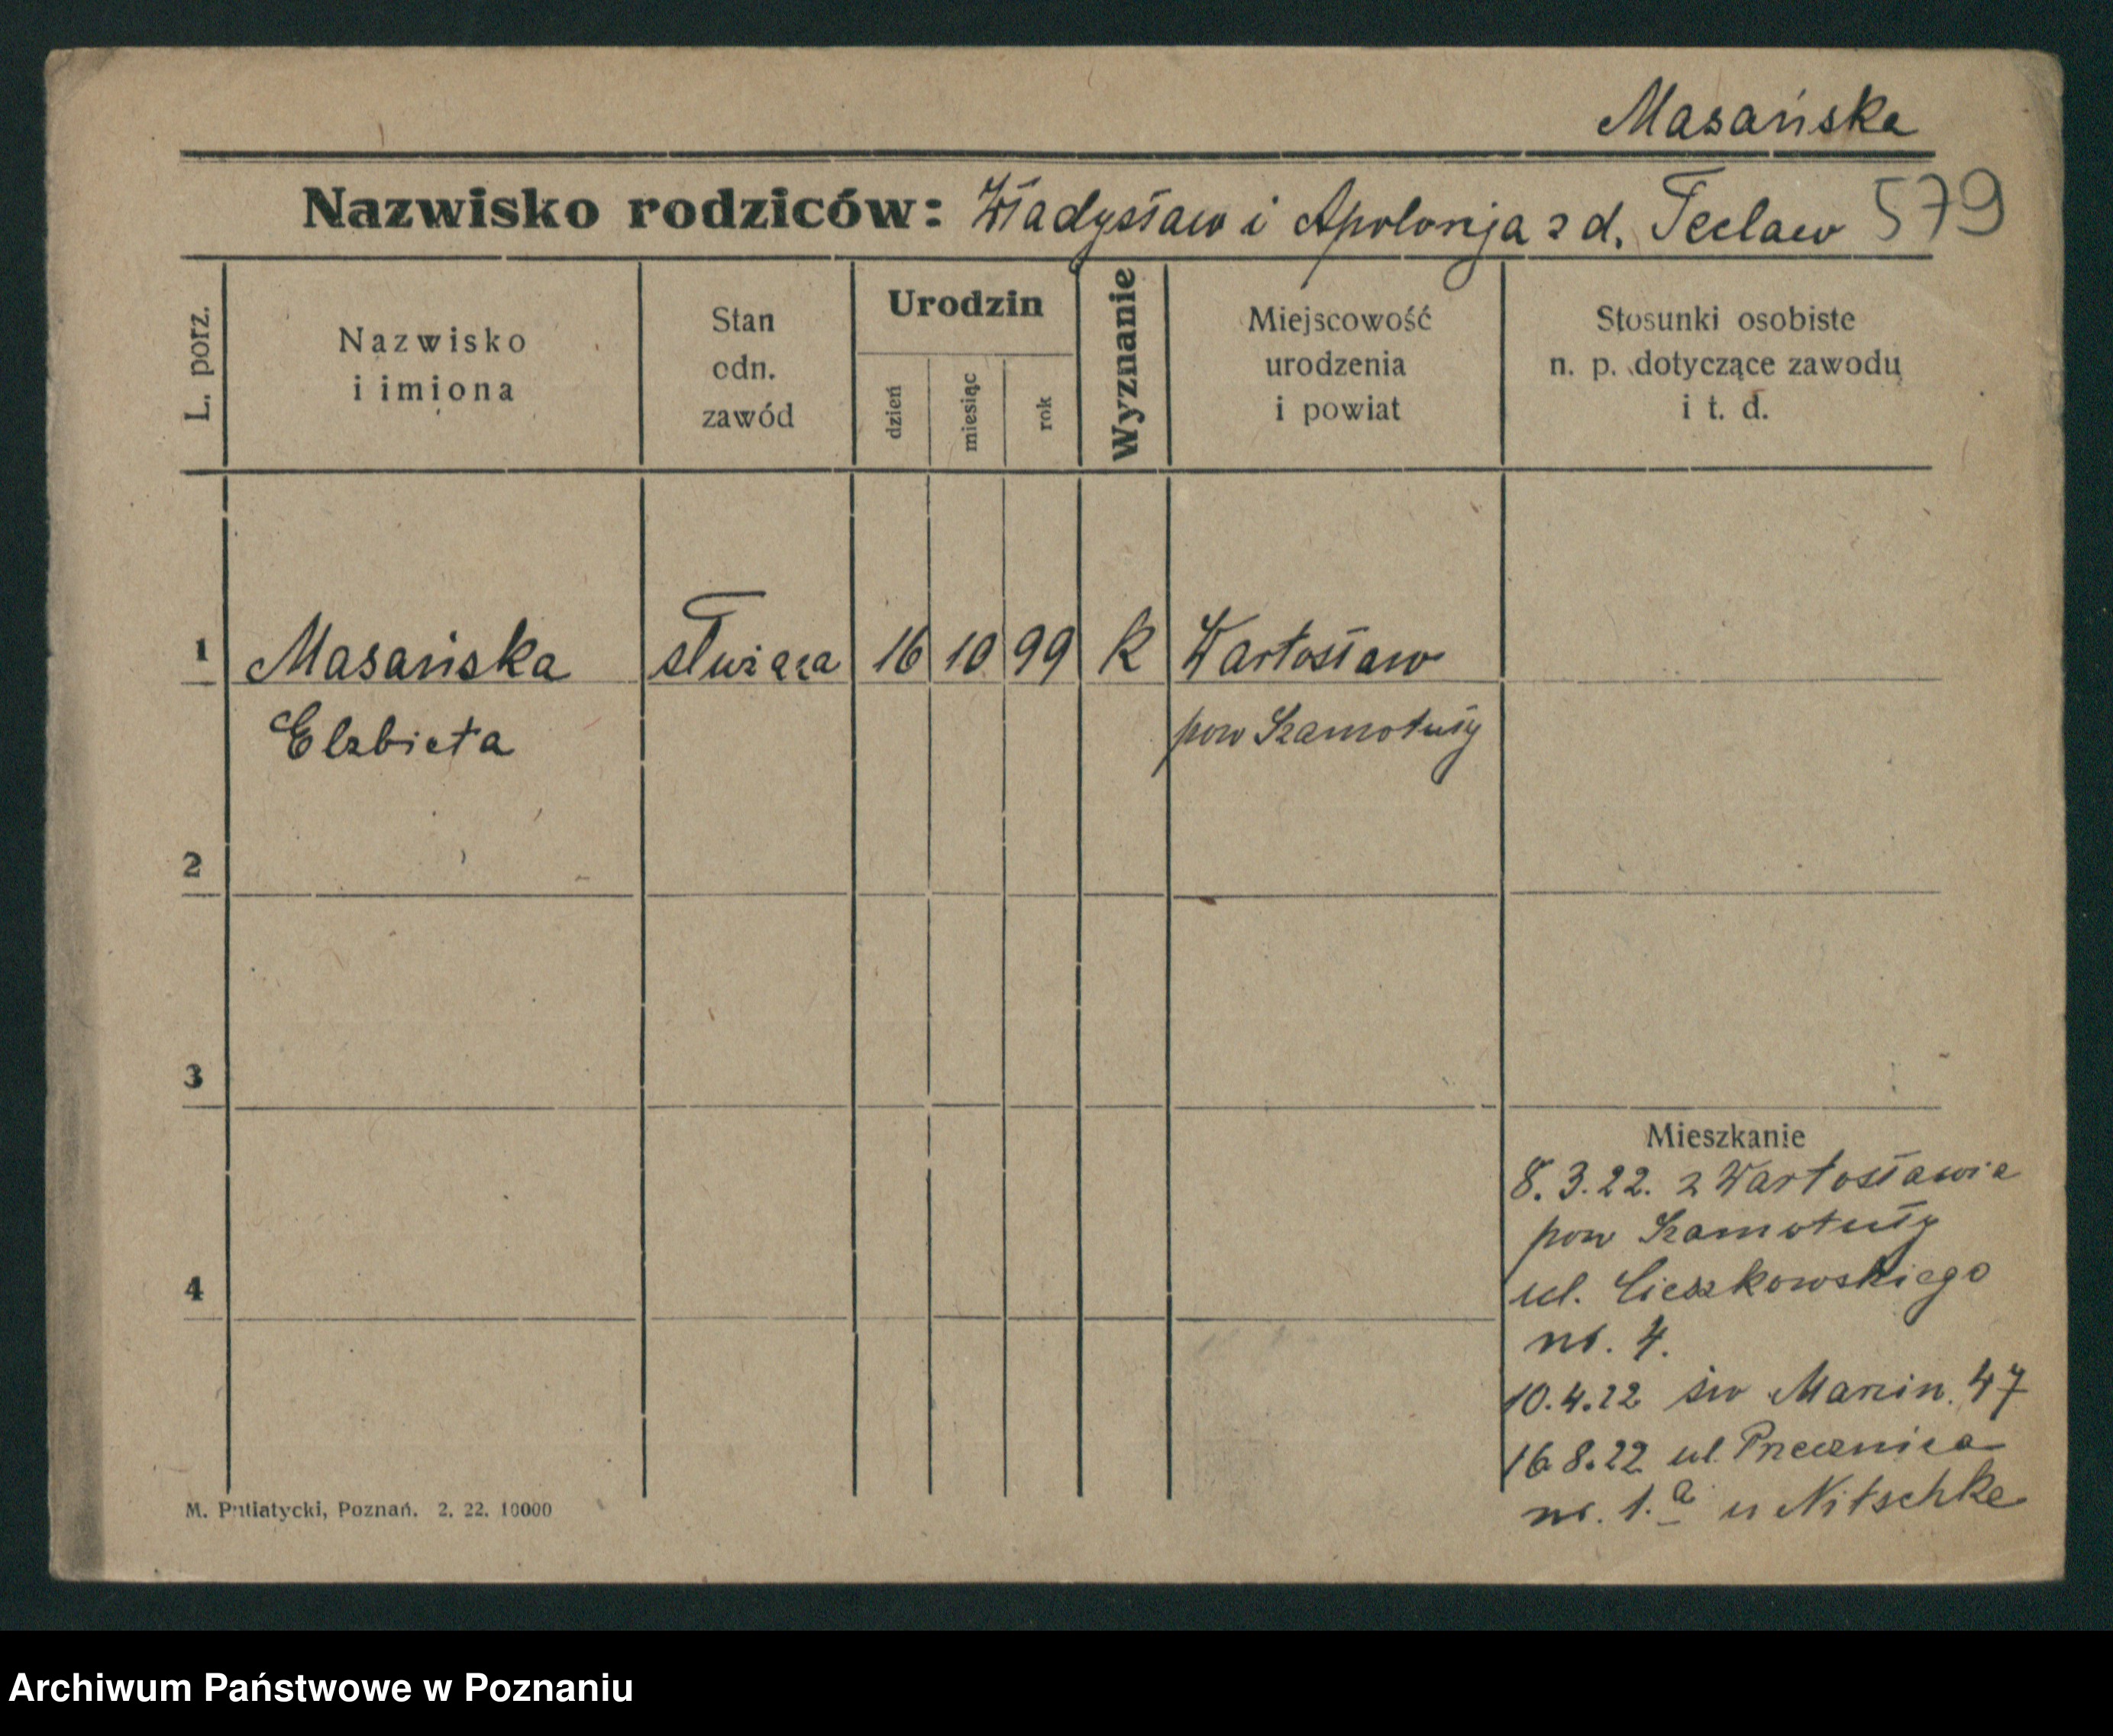 Masańska
Nazwisko rodziców: Władysław i Apolonja z d. Teclaw 579
L. porz.
Nazwisko
i imiona
Stan
odn.
zawód
Urodzin
dzień
miesiąc
rok
Wyznanie
Miejscowość
urodzenia
i powiat
Stosunki osobiste
n. p. dotyczące zawodu
i t. d.
1 Masańska służąca 16 10 99 K Wartosław
Elzbieta pow Szamotuły
2
3
4
Mieszkanie
8.3.22. z Wartosławia
pow Szamotuły
ul. Cieszkowskiego
nr. 4.
10.4.22 św Marcin. 47
16.8.22 ul Przecznica
nr. 1.a u Nitschke
M. Putiatycki, Poznań. 2. 22. 10000
Archiwum Państwowe w Poznaniu